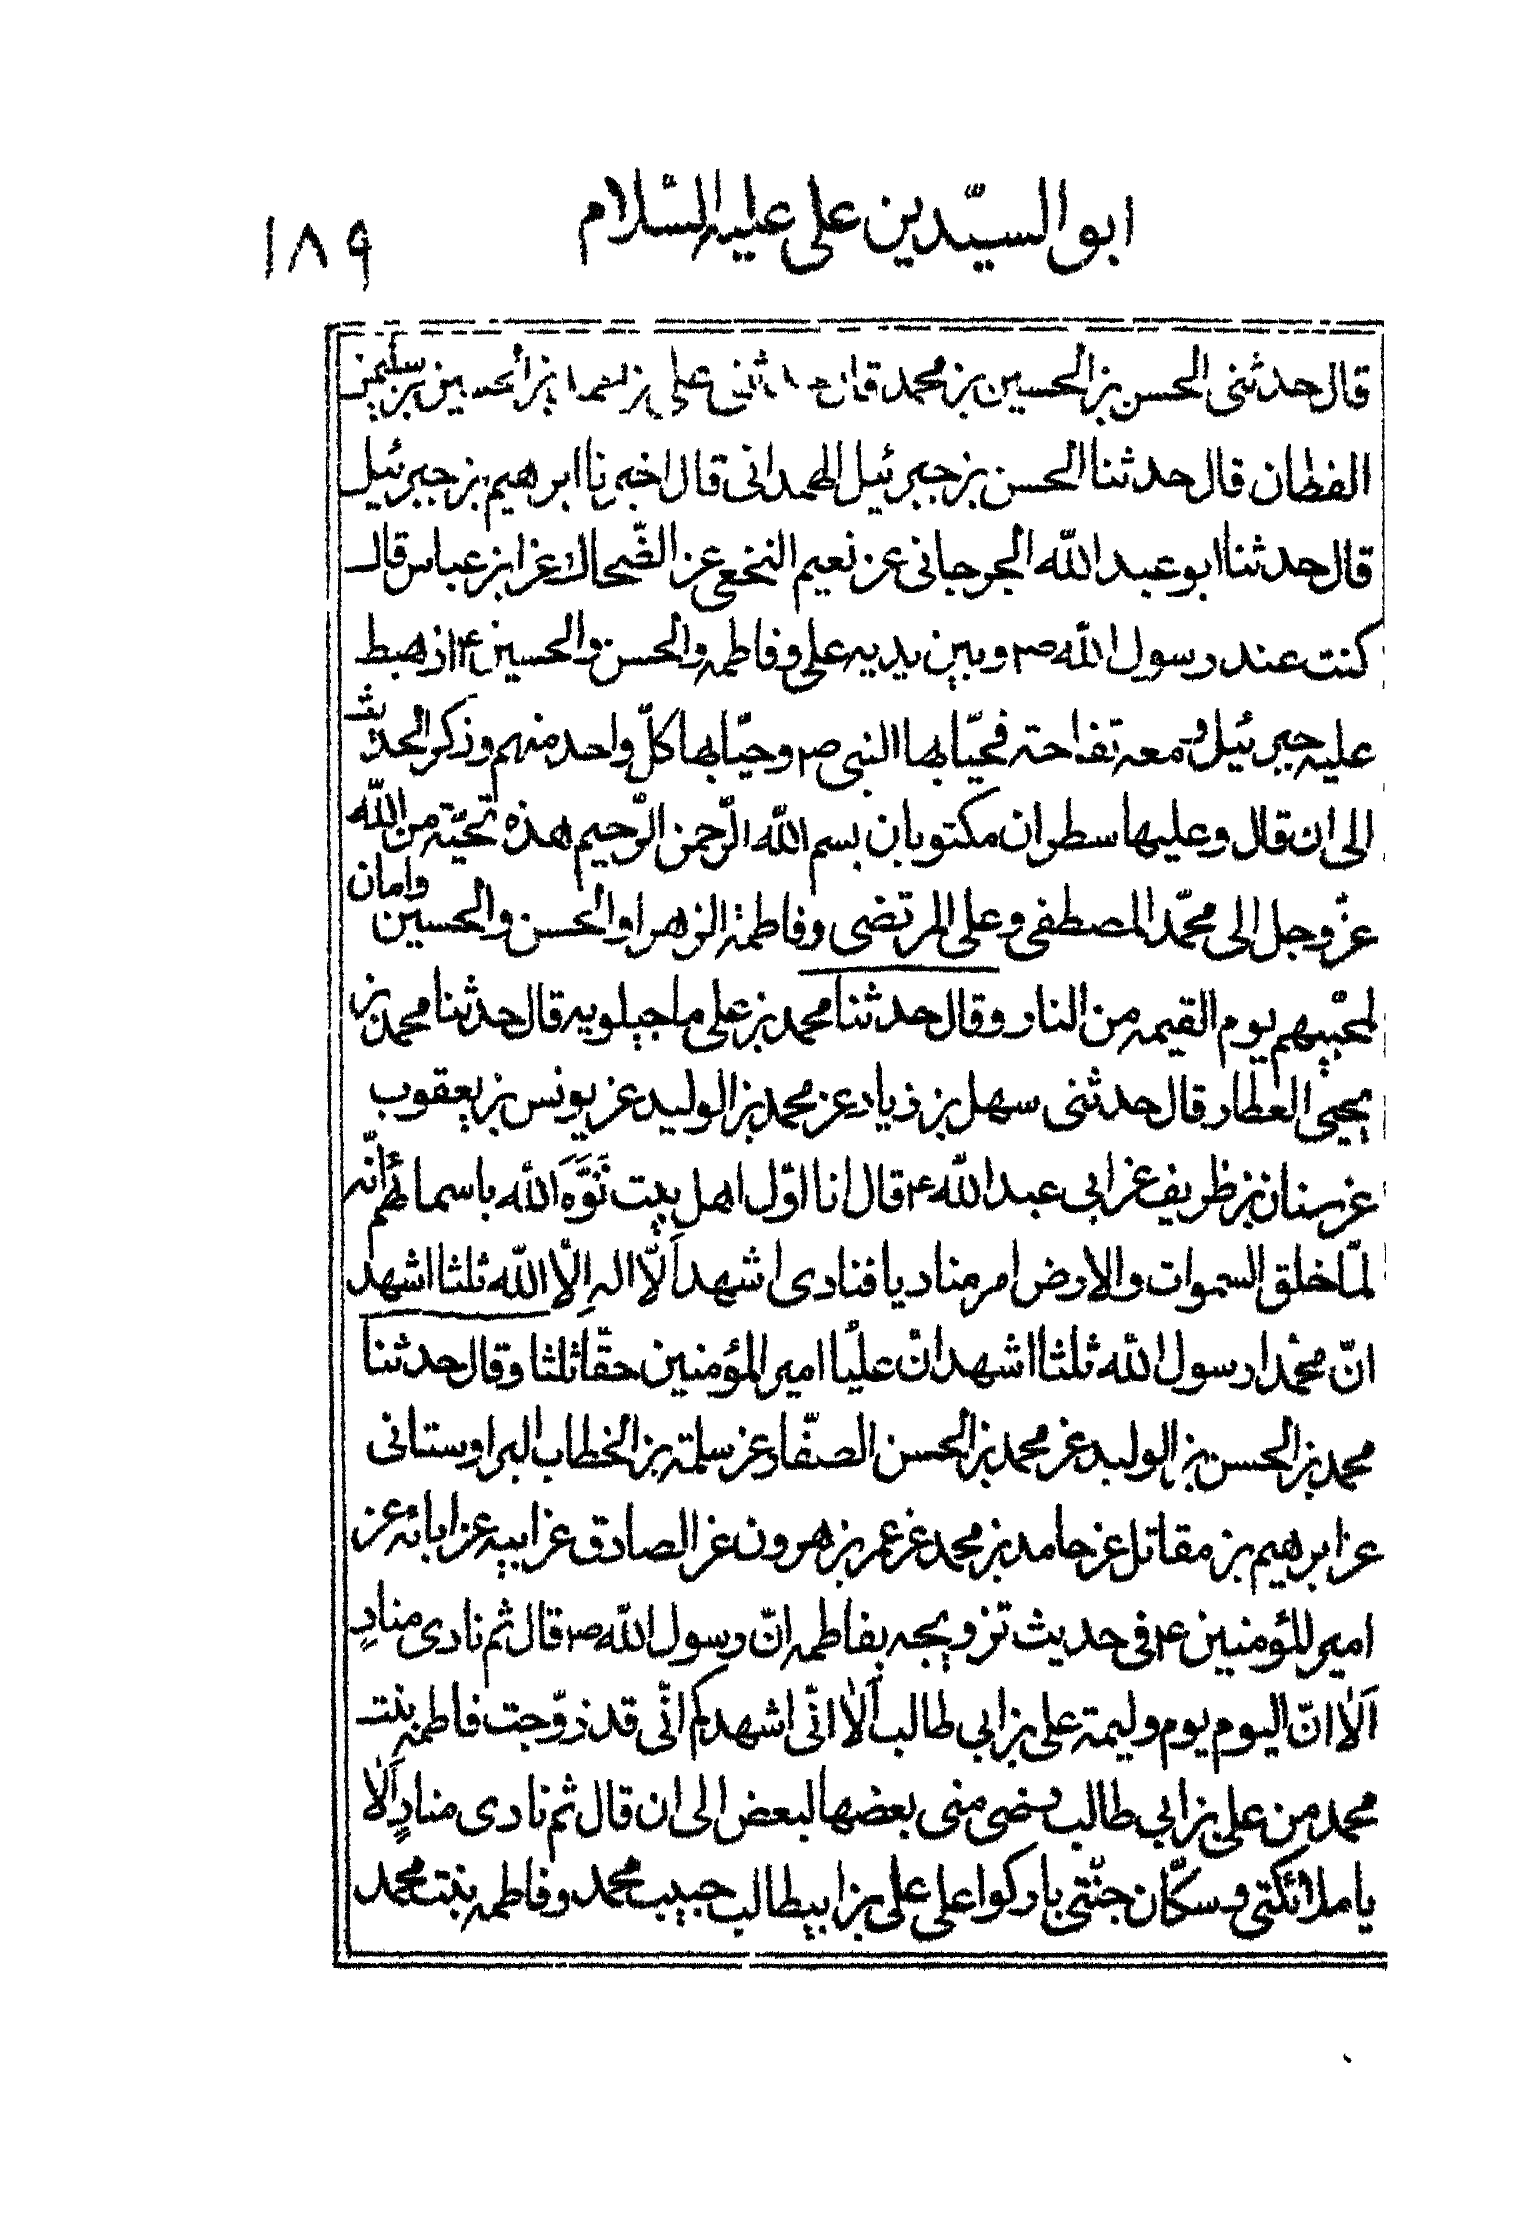 ابو السيّدين على عليه السّلام
١٨٩
قال حدثنى الحسن بن الحسين بن محمد قال على بن بن الحسين بن سليمن
القطان قال حدثنا الحسن بن جبرئيل الهمدانى قال اخبرنا ابرهيم بن جبرئيل
قال حدثنا ابو عبد الله الجرجانى عن نعيم النخعى عن الضّحاك عن ابن عباس قال
كنت عند رسول الله ص وبين يديه على وفاطمه والحسن والحسين ع اذ هبط
عليه جبرئيل ومعه تفاحته فحيّا بها النبى ص وحيّا بها كلّ واحد منهم وذكر الحديث
الى ان قال وعليها سطران مكتوبان بسم الله الرّحمن الرّحيم هذه تحيّة من الله
عزّ وجل الى محمّد المصطفى وعلى المرتضى وفاطمة الزهرا والحسن والحسين وامان
لمحبّيهم يوم القيمه من النار وقال حدثنا محمد بن على ماجيلويه قال حدثنا محمد بن
يحيى العطار قال حدثنى سهل بن زياد عن محمد بن الوليد عن يونس بن يعقوب
عن سنان بن ظريف عن ابى عبد الله ع قال انا اوّل اهل بيت نَوَّهَ الله باسمائهم انّه
لمّا خلق السموات والارض امر مناديا فنادى اشهد اَلّا اله اِلّا الله ثلثا اشهد
انّ محمّدا رسول الله ثلثا اشهد انّ عليّا امير المؤمنين حقّا ثلثا وقال حدثنا
محمد بن الحسن بن الوليد عن محمد بن الحسن الصفّار عن سلمة بن الخطاب البراوستانى
عن ابرهيم بن مقاتل عن حامد بن محمد عن عمر بن هرون عن الصادق عن ابيه عن ابائه عن
امير المؤمنين ع فى حديث تزويجه بفاطمه انّ رسول الله ص قال ثم نادى منادٍ
اَلاٰ انّ اليوم يوم وليمة على بن ابى طالب اَلاٰ انّى اشهدكم انّى قد زوّجت فاطمه بنت
محمد من على بن ابى طالب رضى منى بعضها لبعض الى ان قال ثم نادى منادٍ اَلاٰ
يا ملائكتى وسكّان جنّتى باركوا على على بن ابيطالب حبيب محمد وفاطمه بنت محمد